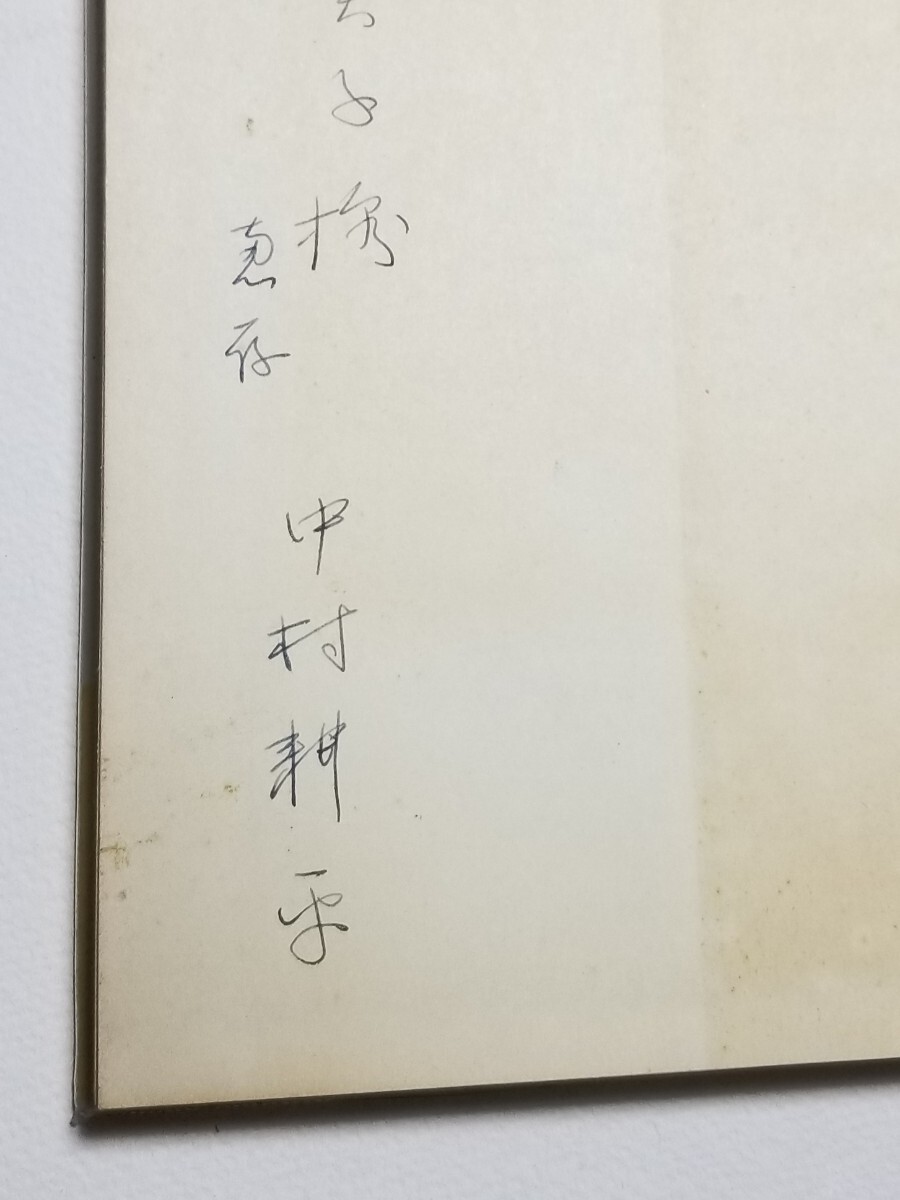 子様
恵存
中村耕平